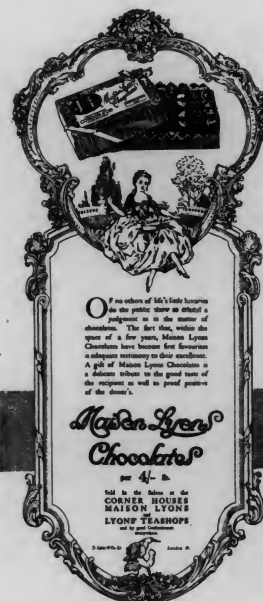 OF no others of life's little luxuries
do the public show so critical a
judgment as in the matter of
chocolates. The fact that, within the
space of a few years, Maison Lyons
Chocolates have become first favourites
is adequate testimony to their excellence.
A gift of Maison Lyons Chocolates is
a delicate tribute to the good taste of
the recipient as well as proof positive
of the donor's.
Maison Lyons
Chocolates
per 4/- lb.
Sold in the Salons at the
CORNER HOUSES
MAISON LYONS
and
LYONS' TEASHOPS
and by good Confectioners
everywhere.
J. Lyons & Co. Ltd. London W.